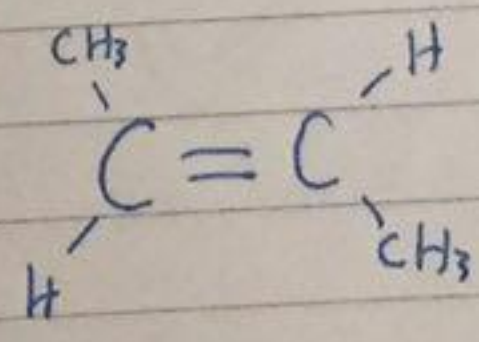 CH₃ H
C = C
H CH₃